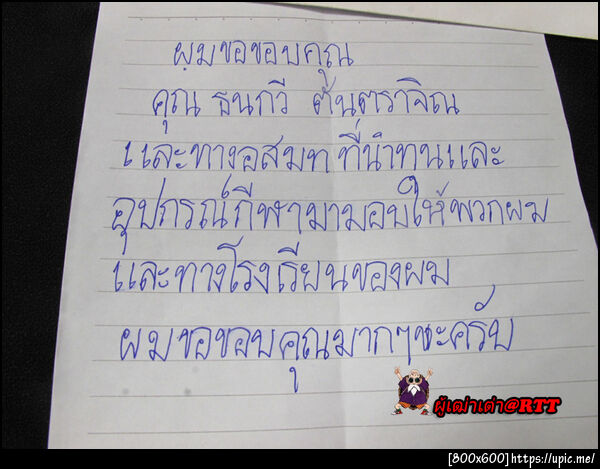 ผมขอขอบคุณ
คุณ ธนกวี ตันตราจิณ
และทางอสมท ที่นำทุนและ
อุปกรณ์กีฬามามอบให้พวกผม
และทางโรงเรียนของผม
ผมขอขอบคุณมากๆนะครับ
ผู้เฒ่าเต่า@RTT
[800x600]https://upic.me/